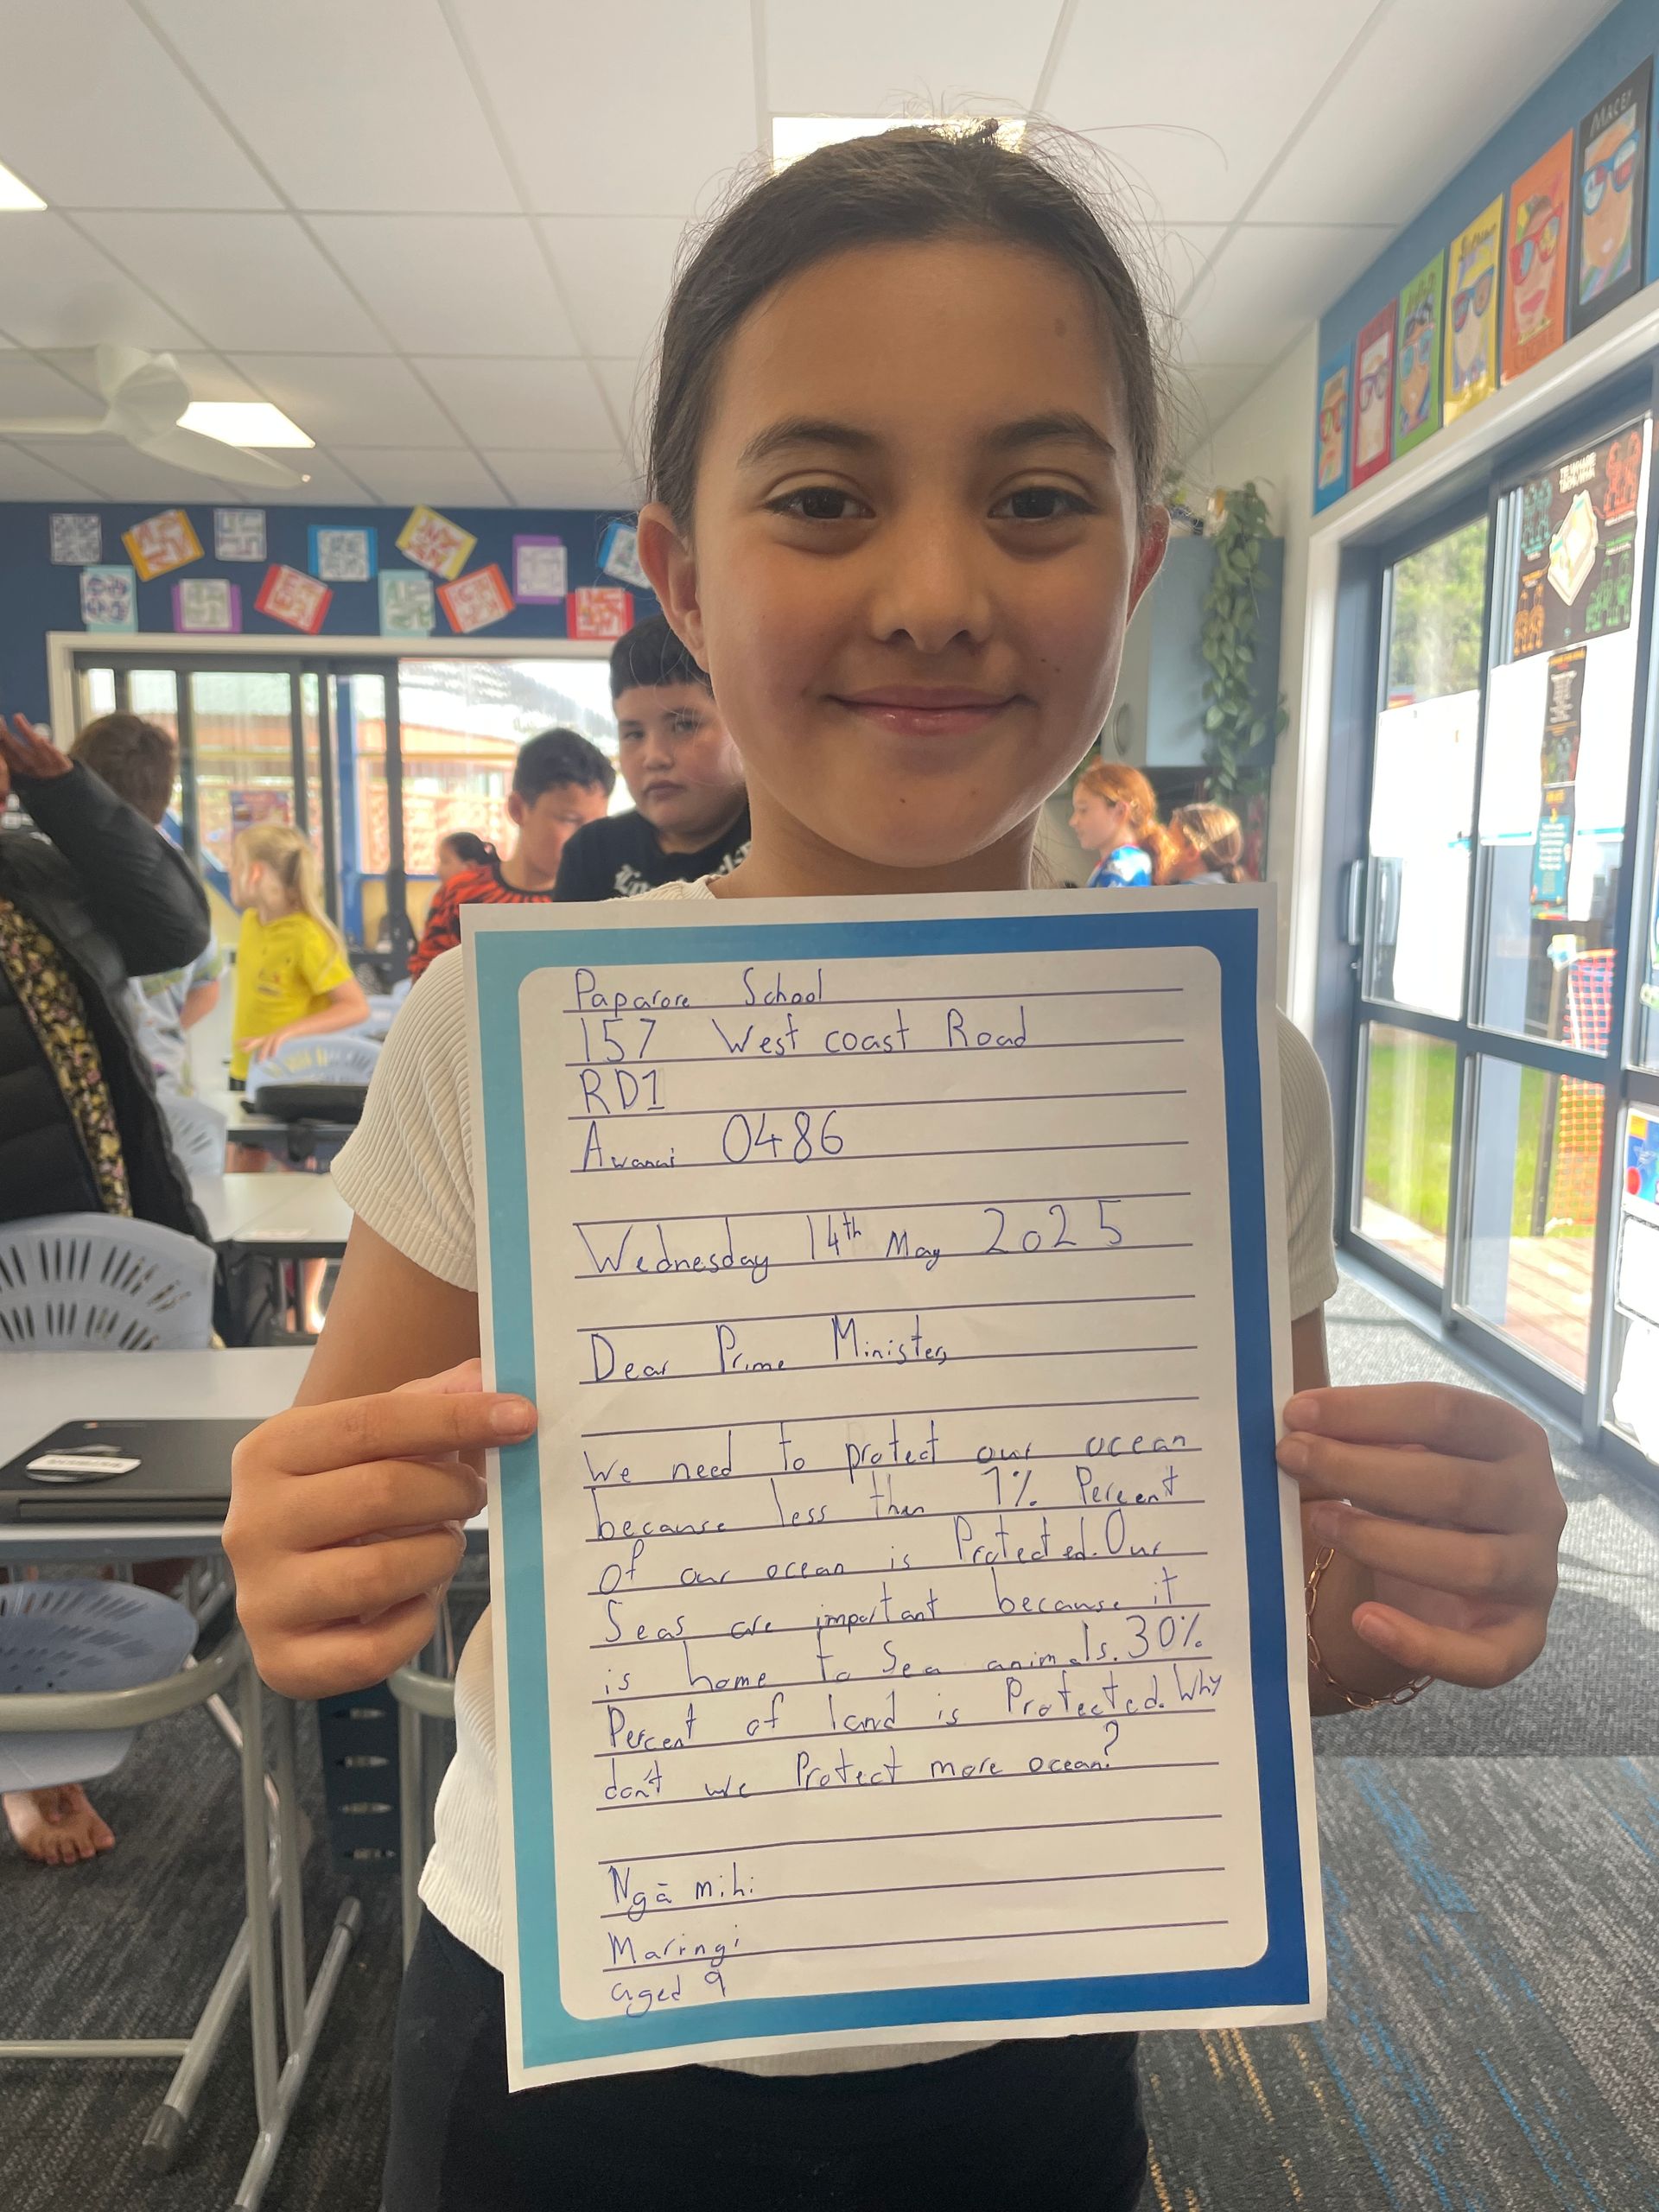 MACEY
Paparore School
157 West coast Road
RD1
Awanui 0486
Wednesday 14th May 2025
Dear Prime Minister,
We need to protect our ocean
because less than 1% Percent
of our ocean is Protected. Our
Seas are important because it
is home to Sea animals. 30%
Percent of land is Protected. Why
don't we Protect more ocean?
Ngā mihi
Maringi
aged 9